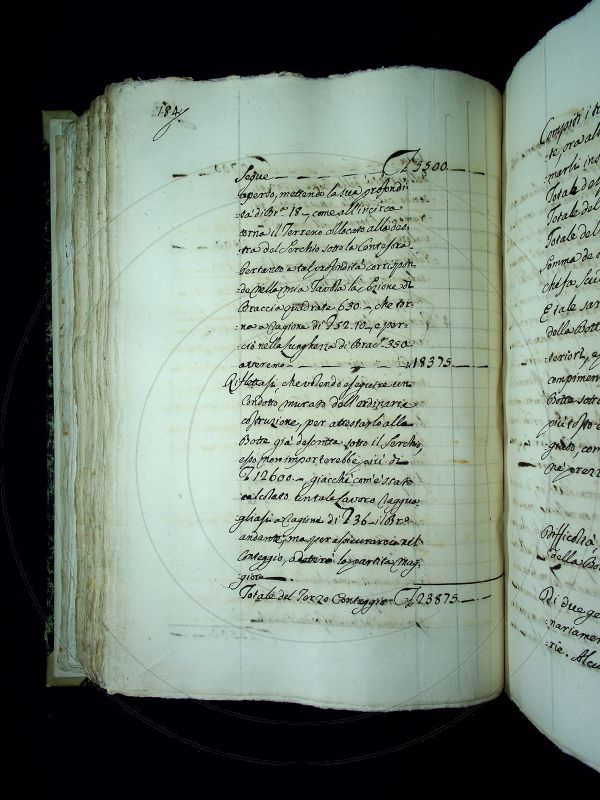 184
Segue — 5500. —
aperto, mettendo la sua profondi
tà di Br.ª 18 –, come all'incirca
torna il Terreno allocato alla des
tra del Serchio sotto la Contesora
Pertanto a tal profondità corrispon
de nella mia Tavola la sezione di
Braccia quadrate 630. –, che tor
na a ragione di 52. 10 –, e per
ciò nella lunghezza di Brac.ª 350
averemo — 18375. —
Riflettasi, che volendo eseguire un
Condotto murato dell'ordinaria
costruzione, per attestarlo alla
Botte già descritta sotto il Serchio,
esso non importerebbe più di
12600. – giacchè com'è stato
calcolato un tale Lavoro raggua-
gliasi a ragione di 36 – il Br.º
andante, ma per assicurarci nel
Conteggio, si terrà la partita mag
giore —
Totale del Terzo Conteggio 23875. —
Compositi i
te ora al
marli ins
Totale de
Totale del
Totale del
Somma de
che fa scu
E tale sar
della Bott
teriori, e
compimen
Botte sott
più tosto
gioso, com
Difficoltà,
della Bo
Di due ge
nariamen
rie. Alcu